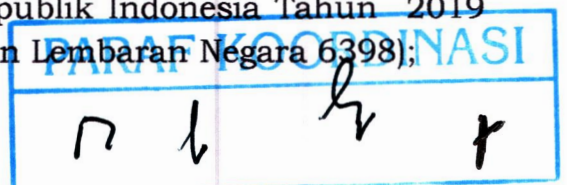 publik Indonesia Tahun 2019
n Lembaran Negara 6398);
PARAF KOORDINASI